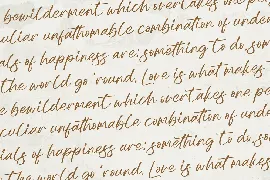 bewilderment which overtakes one pe
culiar unfathomable combination of under
ials of happiness are: something to do, som
the world go 'round. Love is what makes
e bewilderment which overtakes one pe
culiar unfathomable combination of unde
ials of happiness are: something to do, som
the world go 'round. Love is what makes